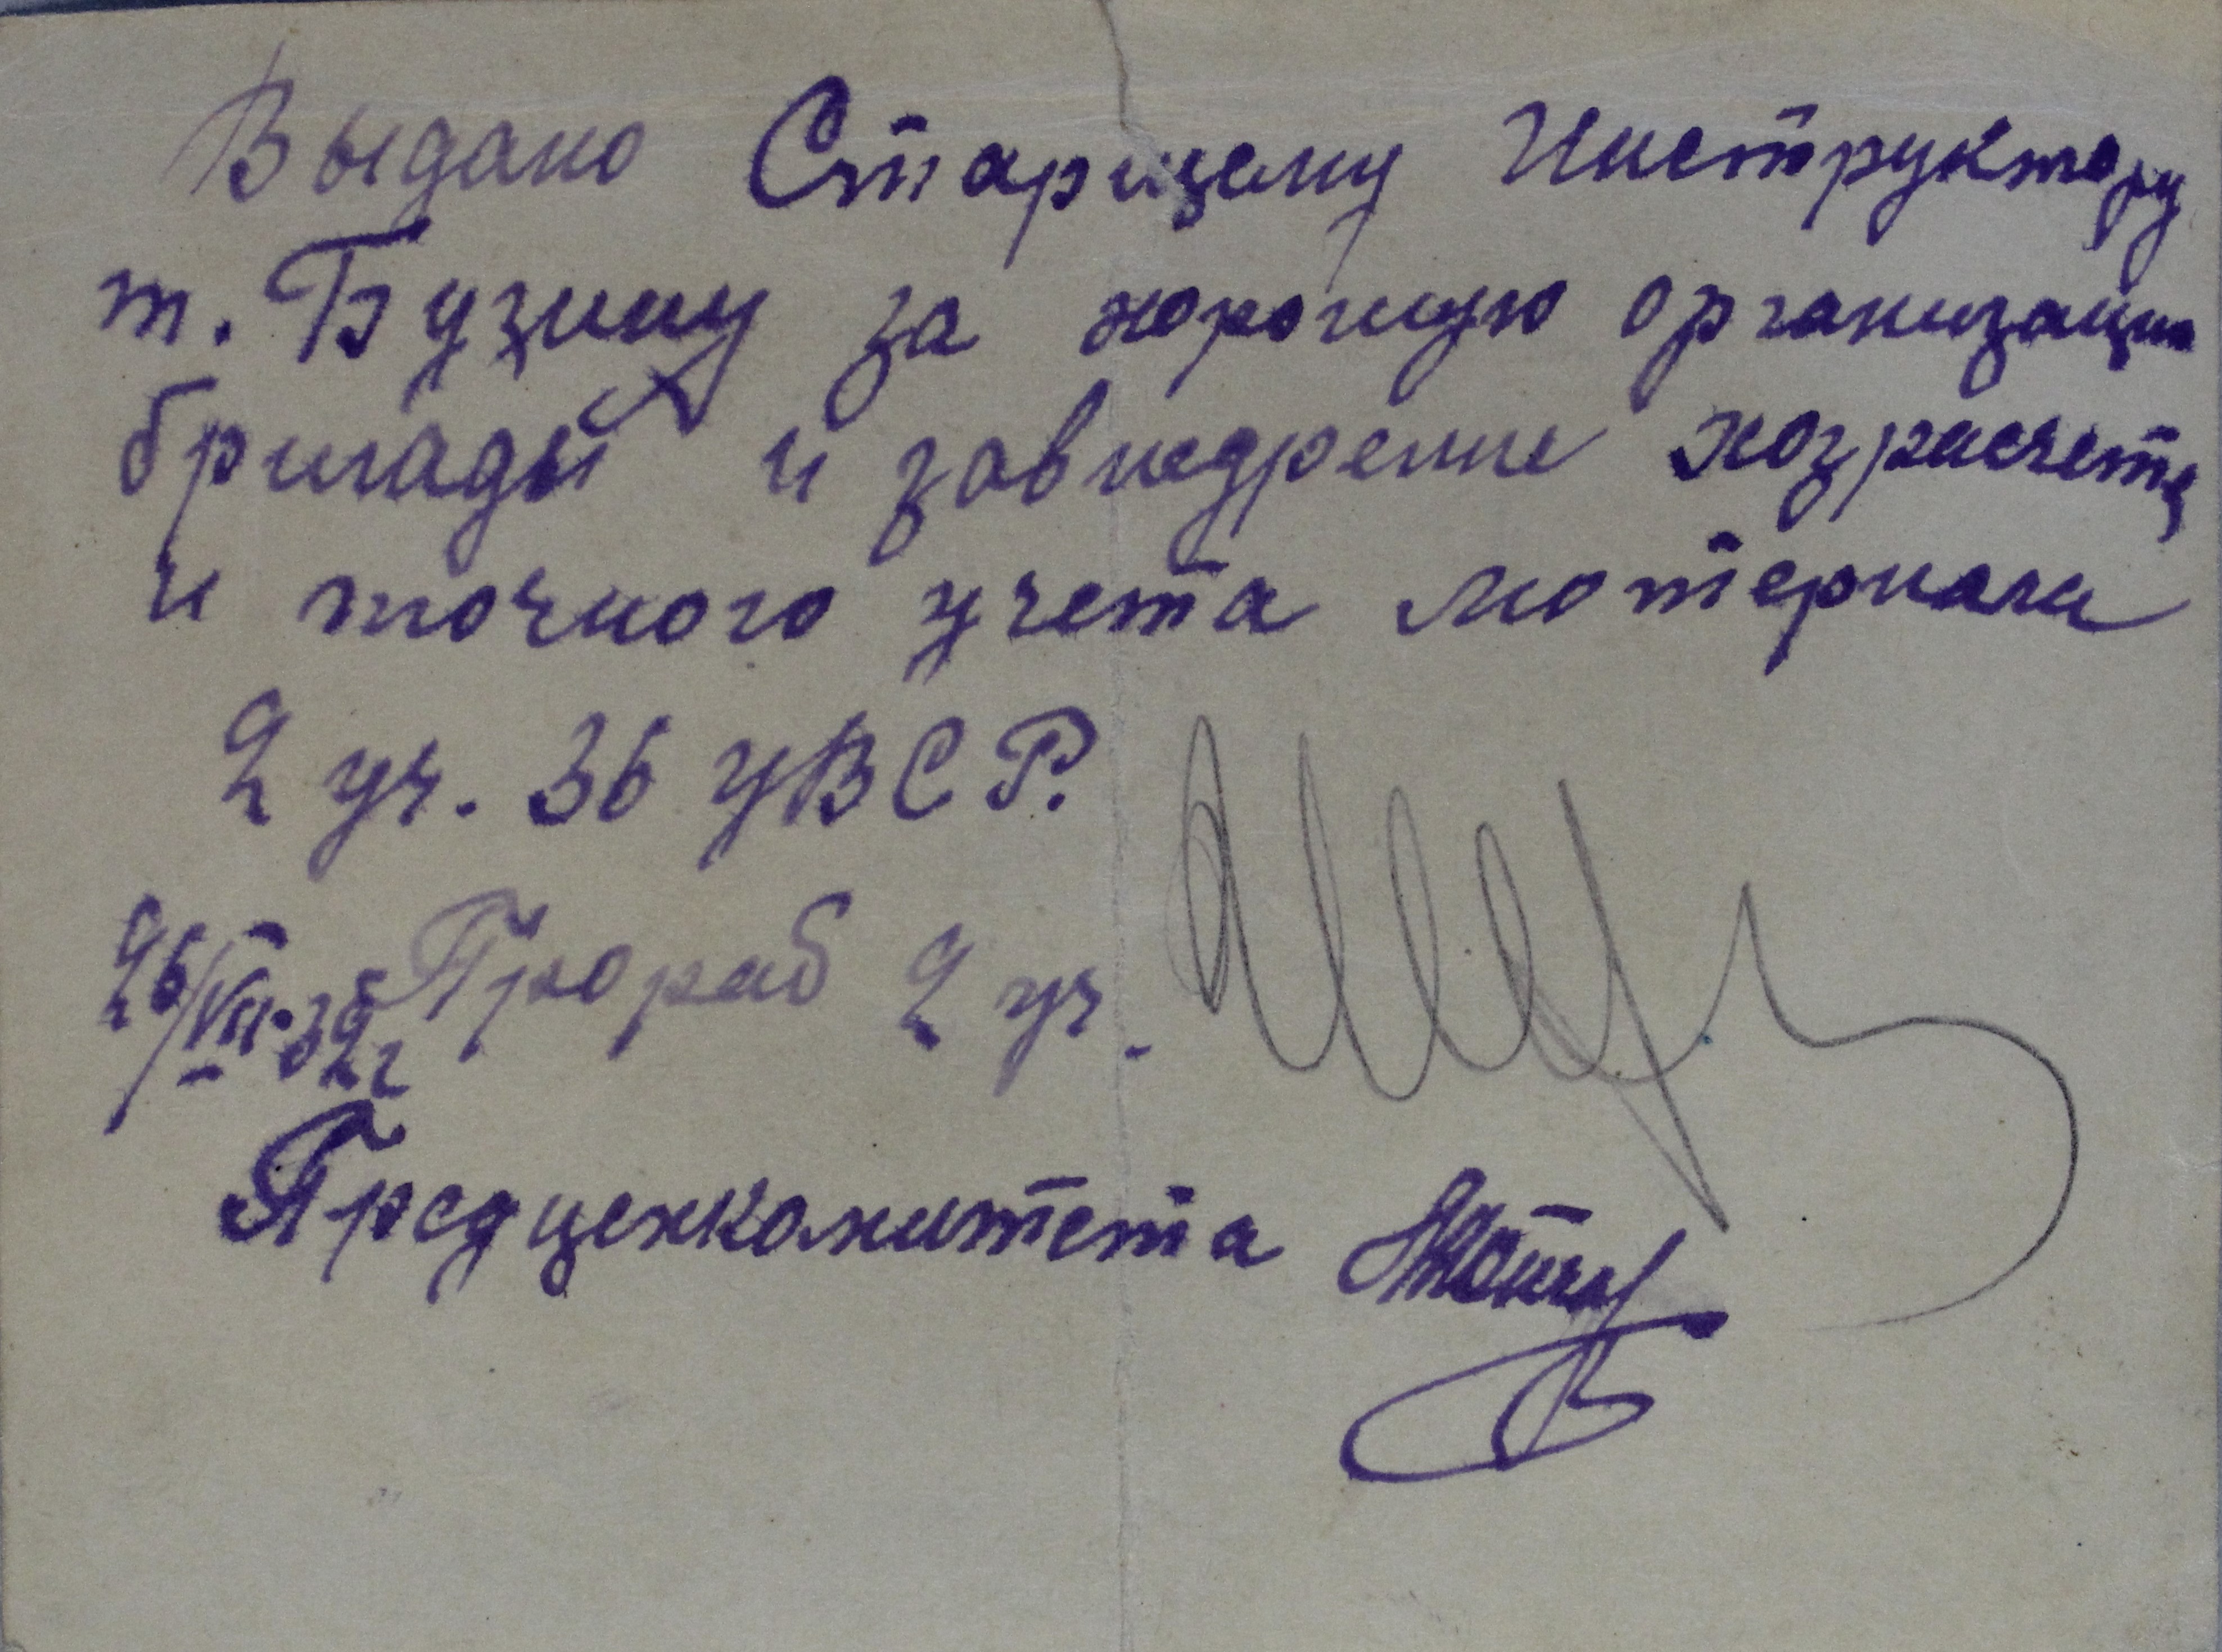 Выдано Старшему Инструктору
т. Бузину за хорошую организацию
бригады и за внедрение хозрасчета
и точного учета материала
2 уч. 36 УВСР.
26/VII-32г Прораб 2 уч.
Предцехкомитета